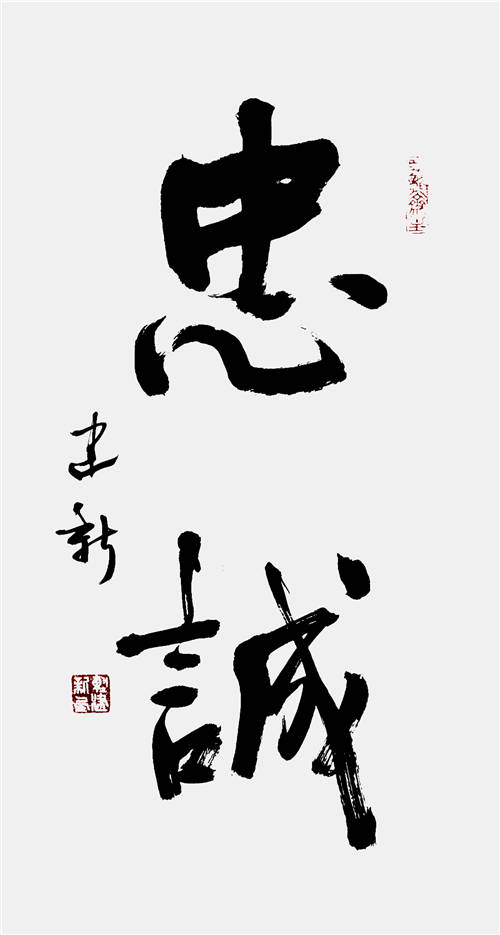 忠誠
建新